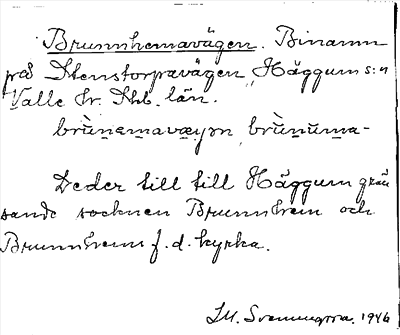 Brunnhemavägen. Binamn
på Stenstorpavägen, Häggum s:n
Valle hr. Skb. län.
brùnemavæyən, brùnuma-
Leder till till Häggum grän
sande socknen Brunnhem och
Brunnhems f. d. kyrka.
1946